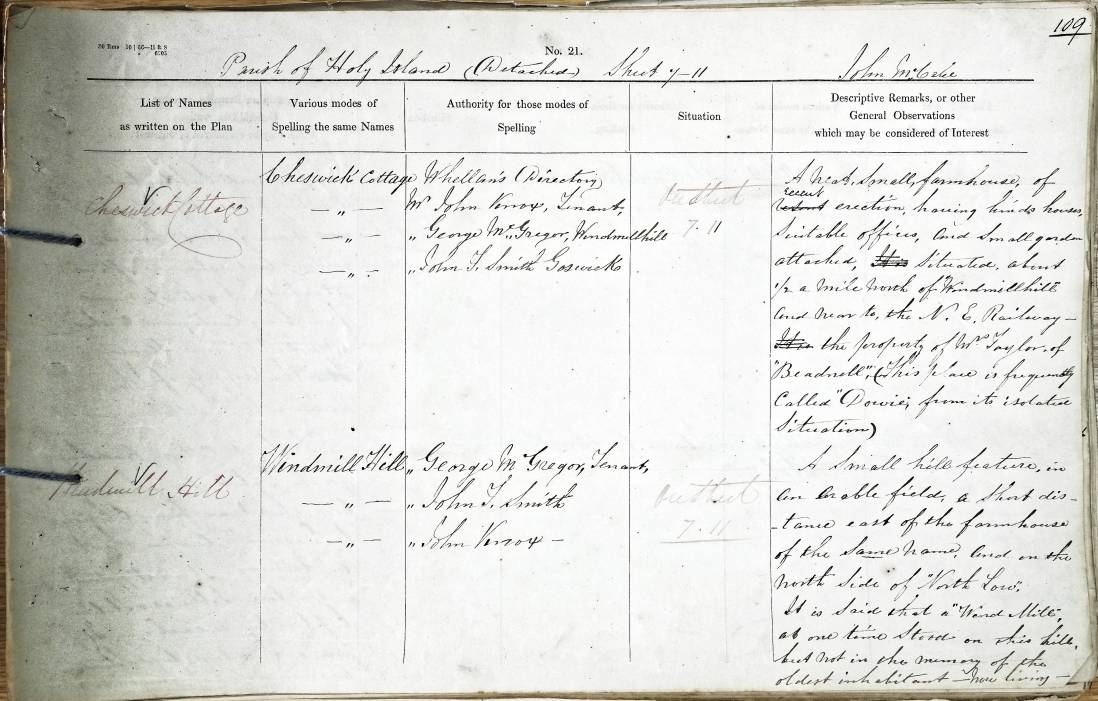 109
No. 21.
Parish of Holy Island (Detached) Sheet 7-11
List of Names
as written on the Plan
Various modes of
Spelling the same Names
Authority for those modes of
Spelling
Situation
Descriptive Remarks, or other
General Observations
which may be considered of Interest
Cheswick Cottage
Cheswick Cottage
— „ —
— „ —
— „ —
Whellan's (Directory)
Mr John Tenant,
„ George McGregor, Windmillhill
„ John T. Smith Goswick
7.11
A neat, small, farmhouse, of
recent
erection, having hinds houses,
Suitable offices, and small garden
attached, It is Situated, about
1/2 a mile North of "Windmillhill"
and near to, the N. E. Railway —
It is the property of Mrs Taylor, of
"Beadnell", (This place is frequently
Called "Dowie", from its isolated
Situation)
Windmill Hill
Windmill Hill
— „ —
— „ —
„ George McGregor, Tenant,
„ John T. Smith
„ John —
7.11
A Small hill feature, in
an arable field, a short dis-
-tance east of the farmhouse
of the Same name, and on the
North Side of "North Low".
It is Said that a "Wind Mill",
at one time Stood on this hill,
but not in the memory of the
oldest inhabitant — now living —